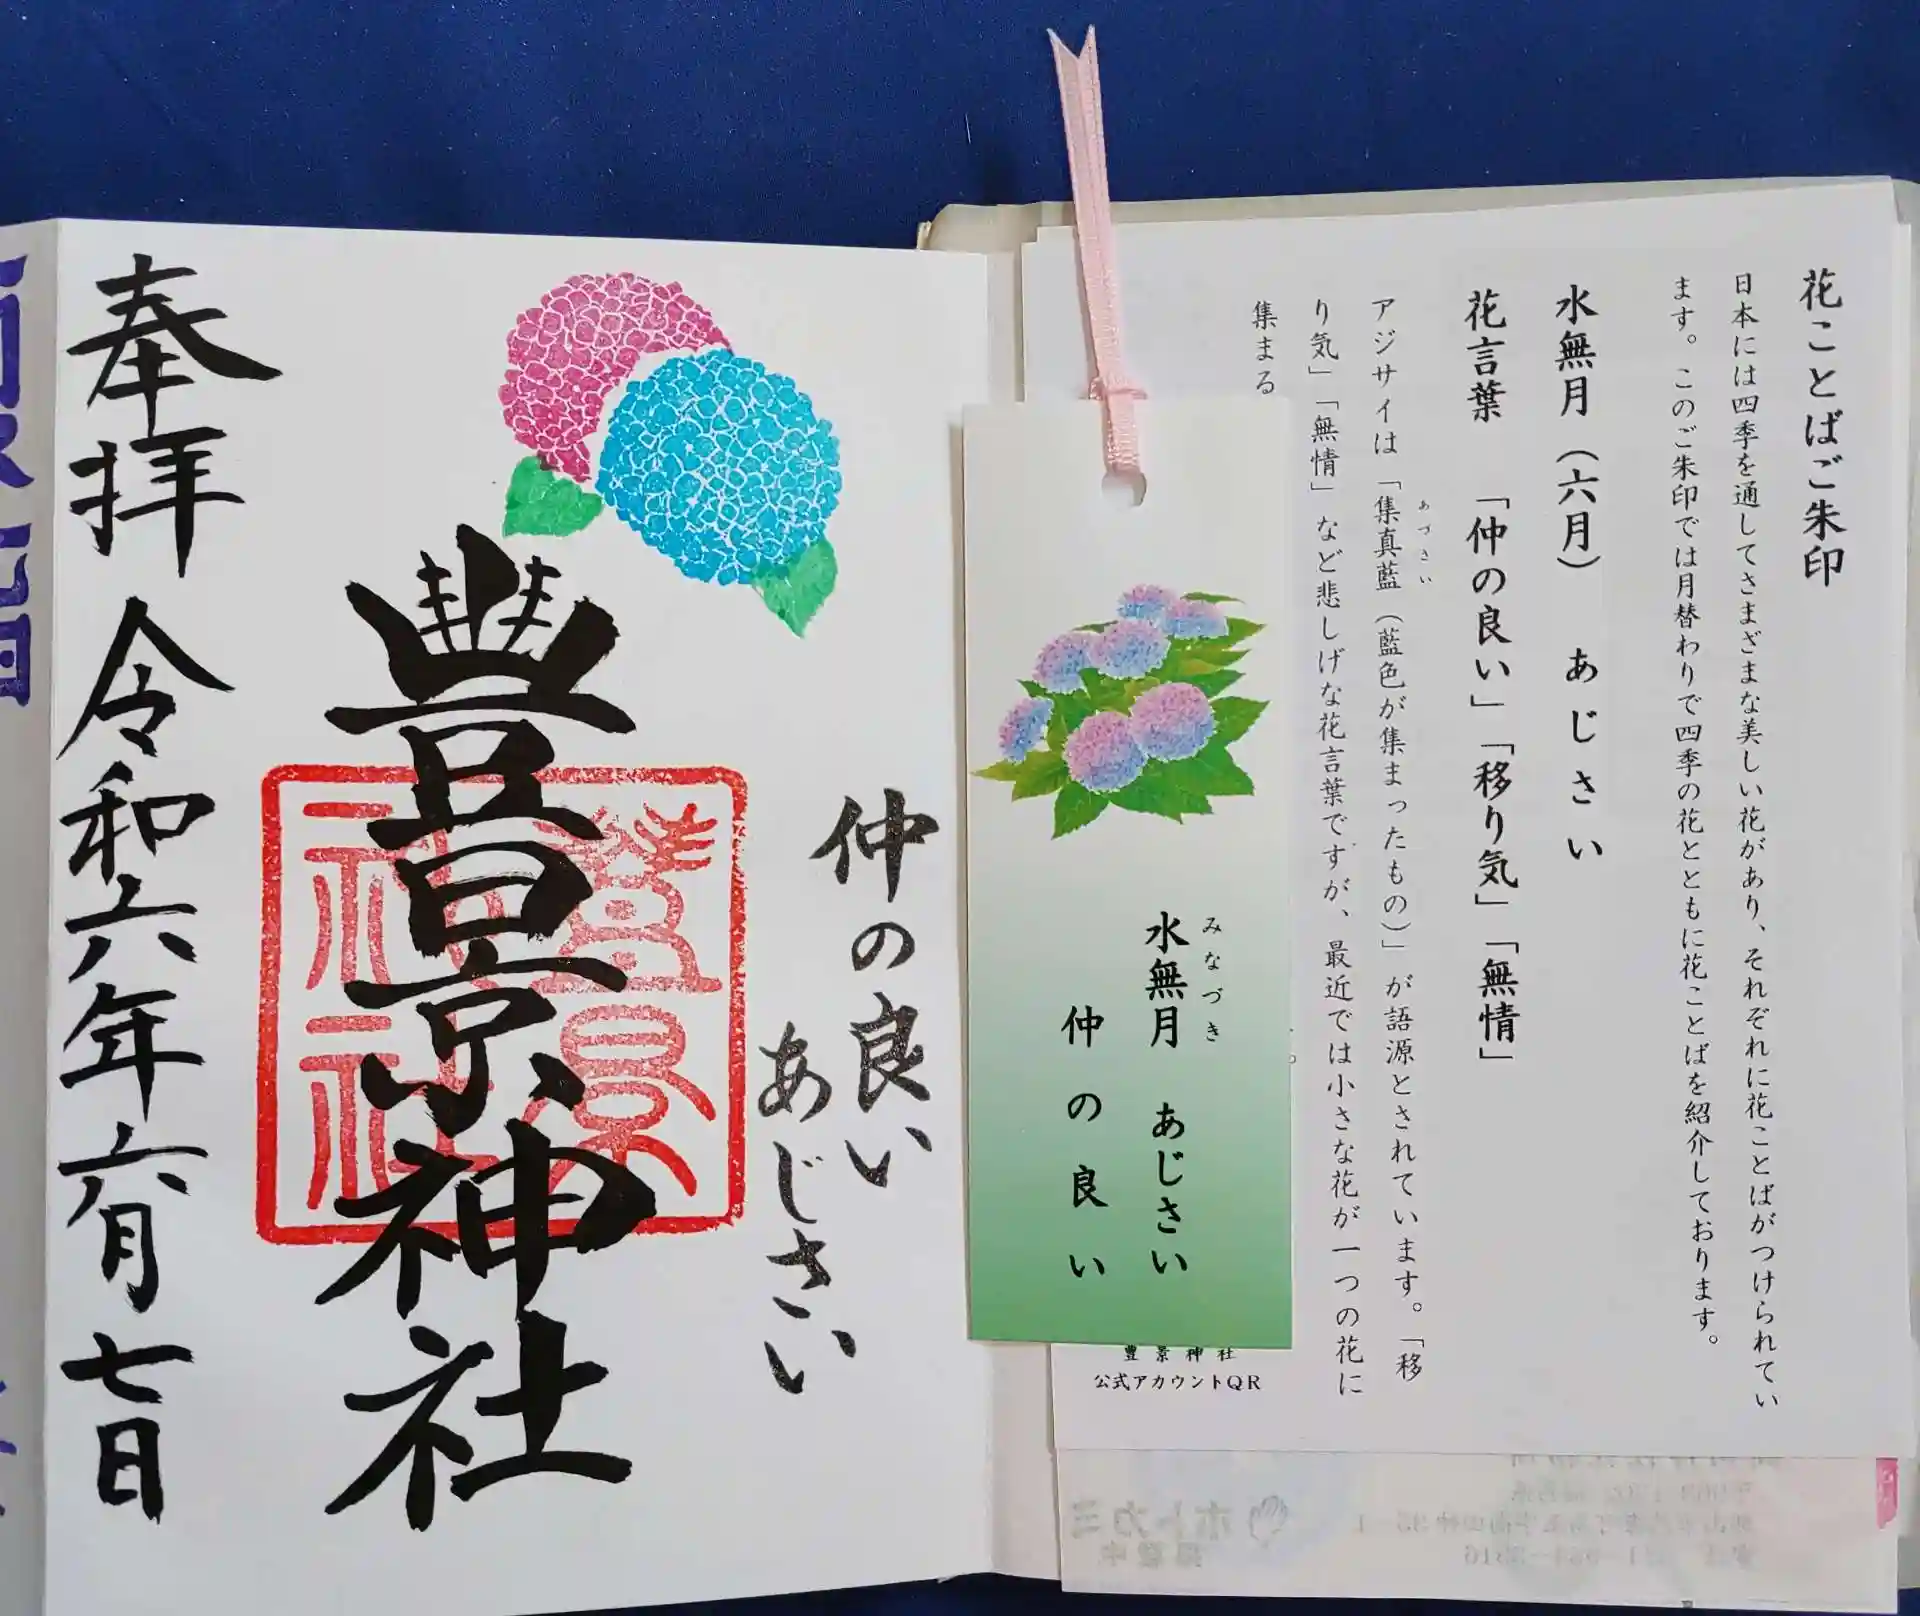 花ことばご朱印
日本には四季を通してさまざまな美しい花があり、それぞれに花ことばがつけられてい
ます。このご朱印では月替わりで四季の花とともに花ことばを紹介しております。
水無月（六月）　あじさい
花言葉　「仲の良い」「移り気」「無情」
アジサイは「集真藍（藍色が集まったもの）」が語源とされています。「移
あづさい
り気」「無情」など悲しげな花言葉ですが、最近では小さな花が一つの花に
集まる
水無月　あじさい
みなづき
仲の良い
豊景神社
公式アカウントQR
仲の良い
あじさい
豊景神社
豊景
神社
奉拝　令和六年六月七日
ホトカミ